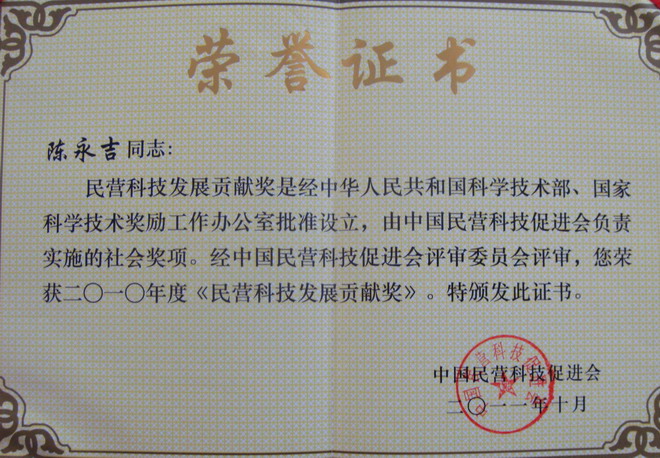 荣誉证书
陈永吉同志:
民营科技发展贡献奖是经中华人民共和国科学技术部、国家
科学技术奖励工作办公室批准设立，由中国民营科技促进会负责
实施的社会奖项。经中国民营科技促进会评审委员会评审，您荣
获二〇一〇年度《民营科技发展贡献奖》。特颁发此证书。
中国民营科技促进会
中国民营科技促进会
二〇一一年十月